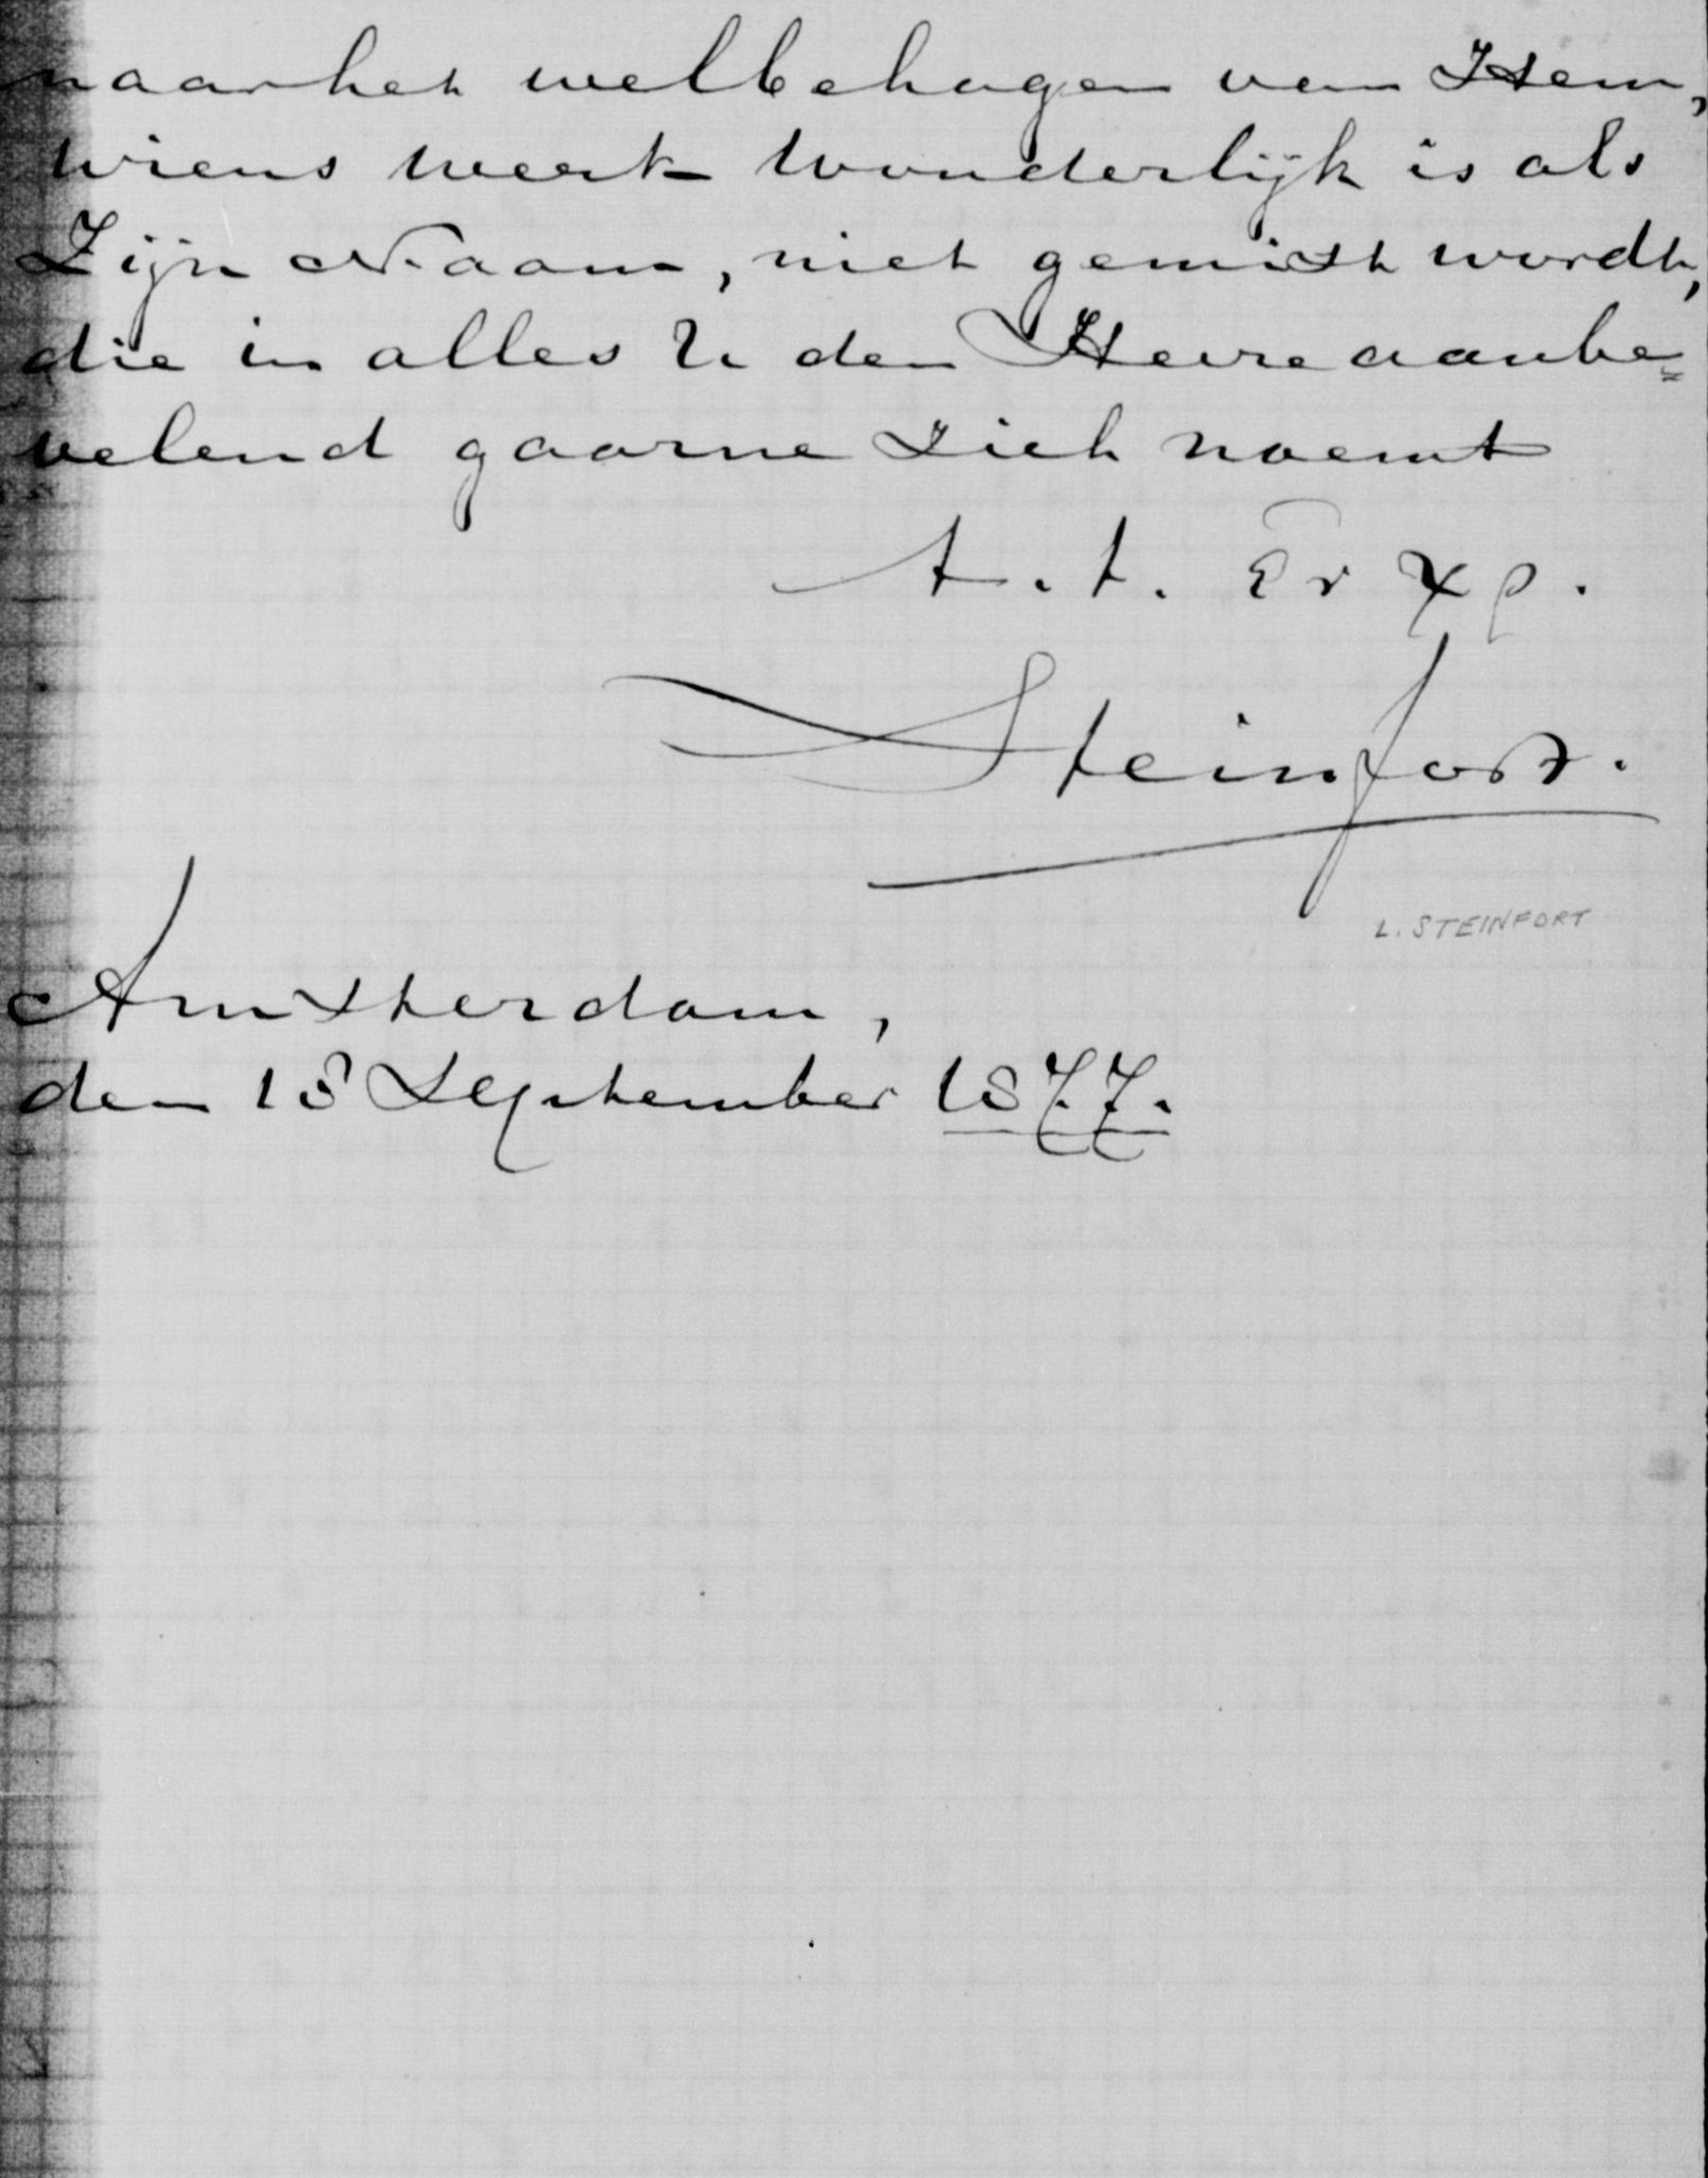 naar het welbehagen van Hem,
wiens werk wonderlijk is als
Zijn Naam, niet gemist wordt,
die in alles U den Heere aanbe=
velend gaarne zich noemt
t. t. ἐν χρ.
Steinfort.
L. STEINFORT
Amsterdam,
den 18 September 1877.